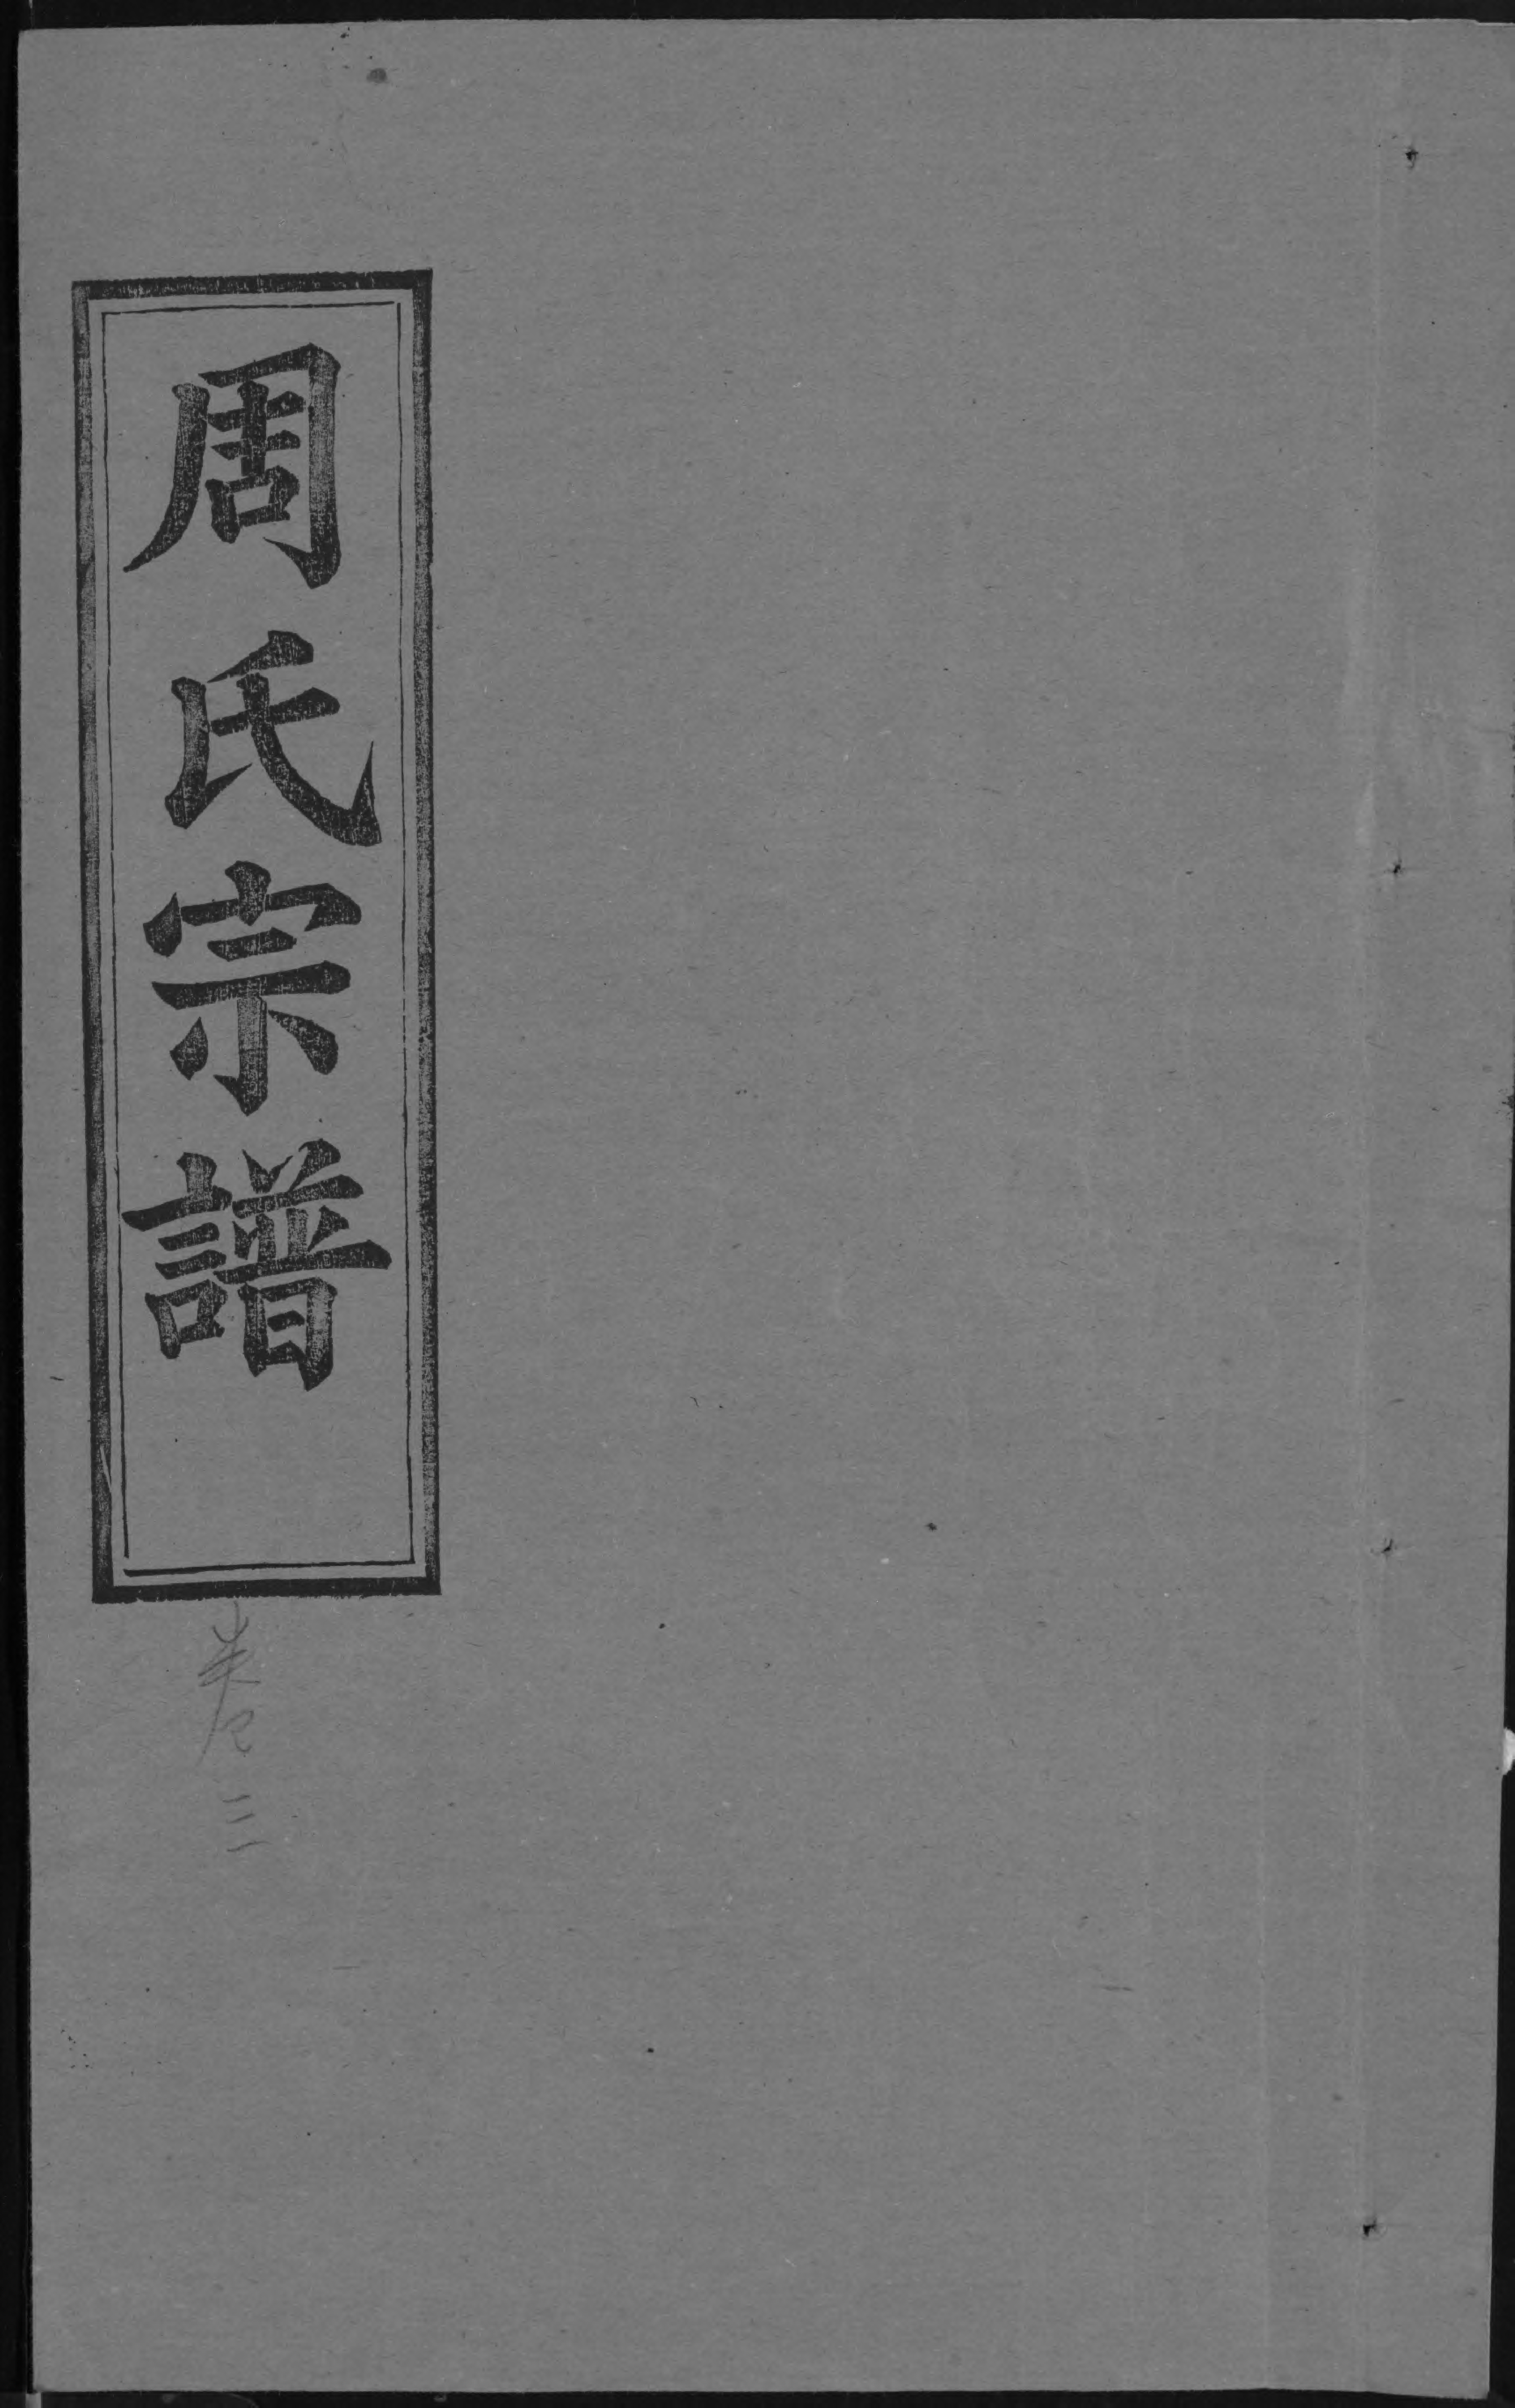 周氏宗譜
卷三